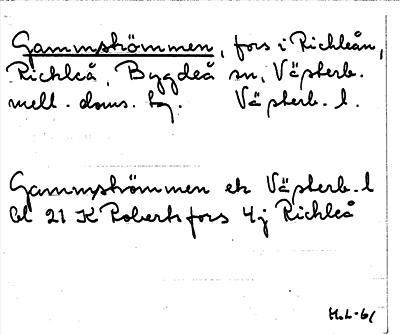 Gammströmmen, fors i Rickleån,
Rickleå, Bygdeå sn, Västerb.
mell. doms. hg. Västerb. l.
Gammströmmen ek Västerb. l
bl 21 K Robertsfors 4j Rickleå